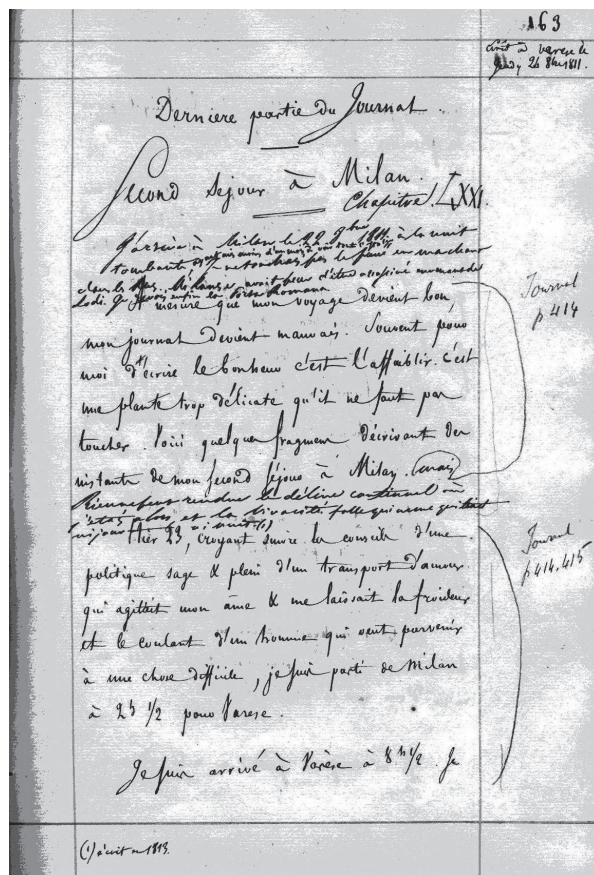 163
écrit à Varese le
Jeudi 26 8bre 1811.
Derniere partie du Journal.
Second Sejour à Milan.
Chapitre LXXI.
J'arrive à Milan le 22 9bre 1811. à la nuit
tombante
clans les Milanais avait peur d'être
Lodi. enfin la Porta Romana
A mesure que mon voyage devient bon,
mon journal devient mauvais. Souvent pour
moi d'écrire le bonheur c'est l'affaiblir. C'est
une plante trop délicate qu'il ne faut pas
toucher. Voici quelques fragmens décrivant des
instants de mon second séjour à Milan.
Journal
p. 414
Rien ne peut rendre le délire continuel où
j'étais alors et la vivacité folle qui
(1)
Hier 25, croyant suivre les conseils d'une
politique sage & plein d'un transport d'amour
qui agittait mon âme & me laissait la froideur
et le coulant d'un homme qui veut parvenir
à une chose difficile, je suis parti de Milan
à 2h 1/2 pour Varese.
Journal
p. 414.415
Je suis arrivé à Varèse à 8h 1/2. Je
(1) écrit en 1813.